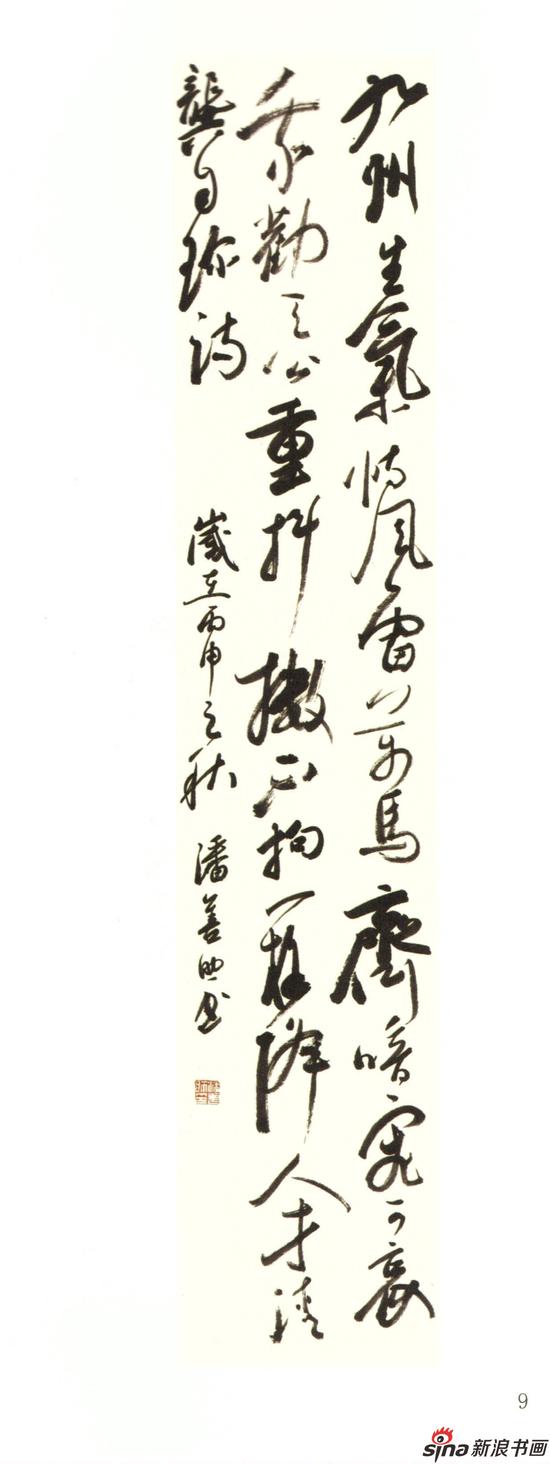 九州生氣恃風雷萬馬齊喑究可哀
我勸天公重抖擻不拘一格降人才清
龔自珍詩 歲在丙申之秋 潘善助書
9
sina新浪书画